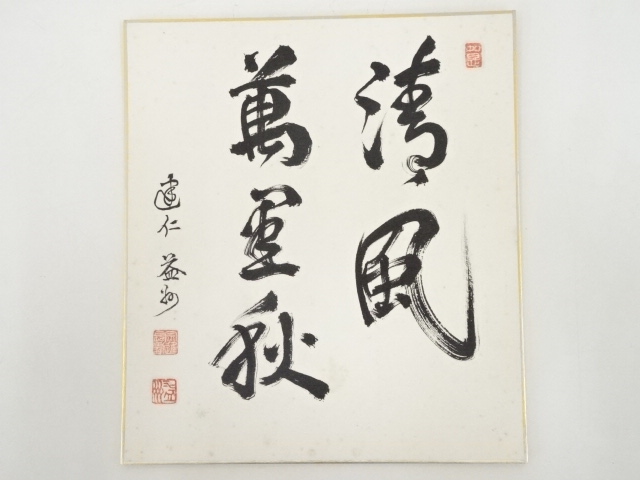 清風
萬里秋
建仁 益州